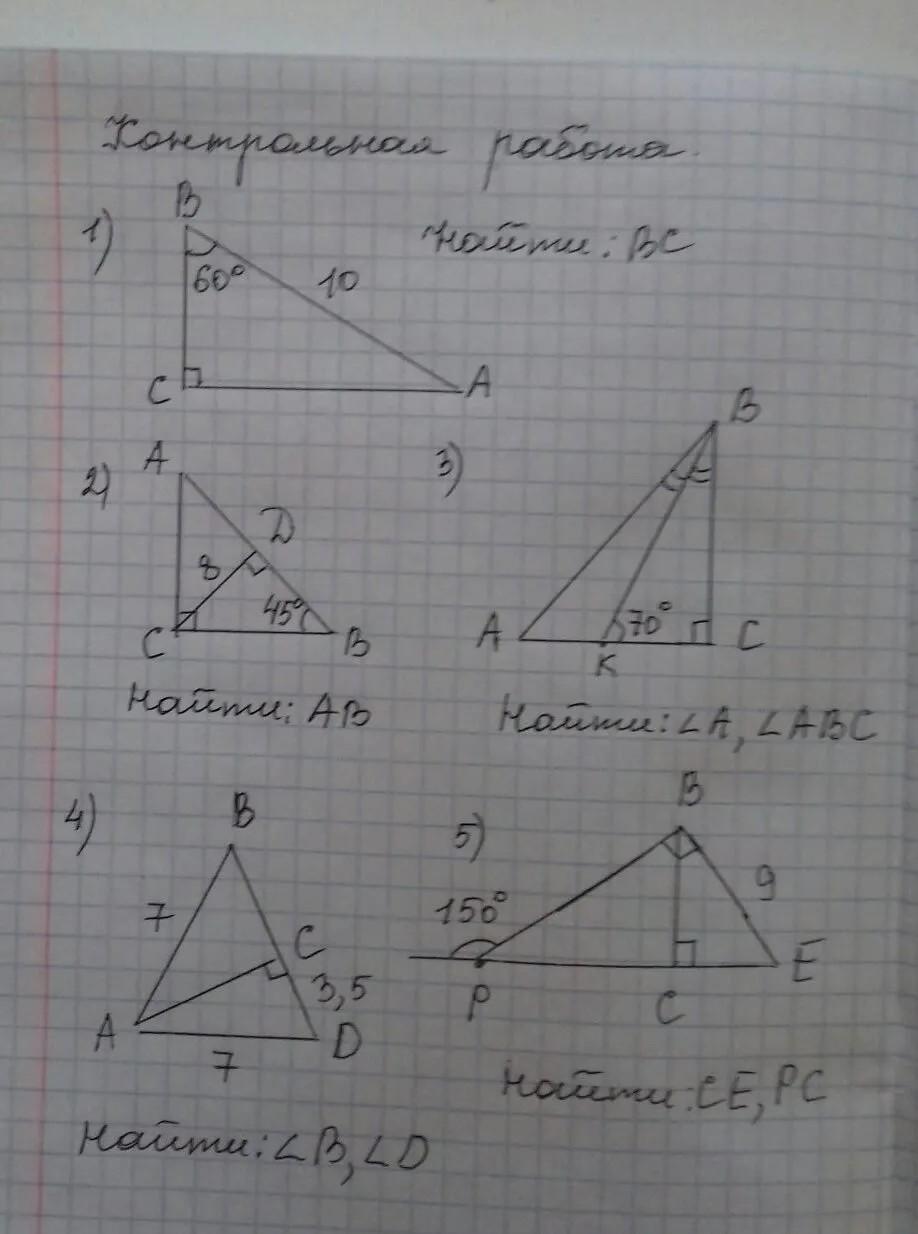 Контрольная работа.
1) B Найти: BC
60° 10
C A
2) A
D
8
45°
C B
Найти: AB
3) B
A 70° C
K
Найти: ∠A, ∠ABC
4) B
7
C
3,5
A D
7
Найти: ∠B, ∠D
5) B
150° 9
P C E
Найти: CE, PC